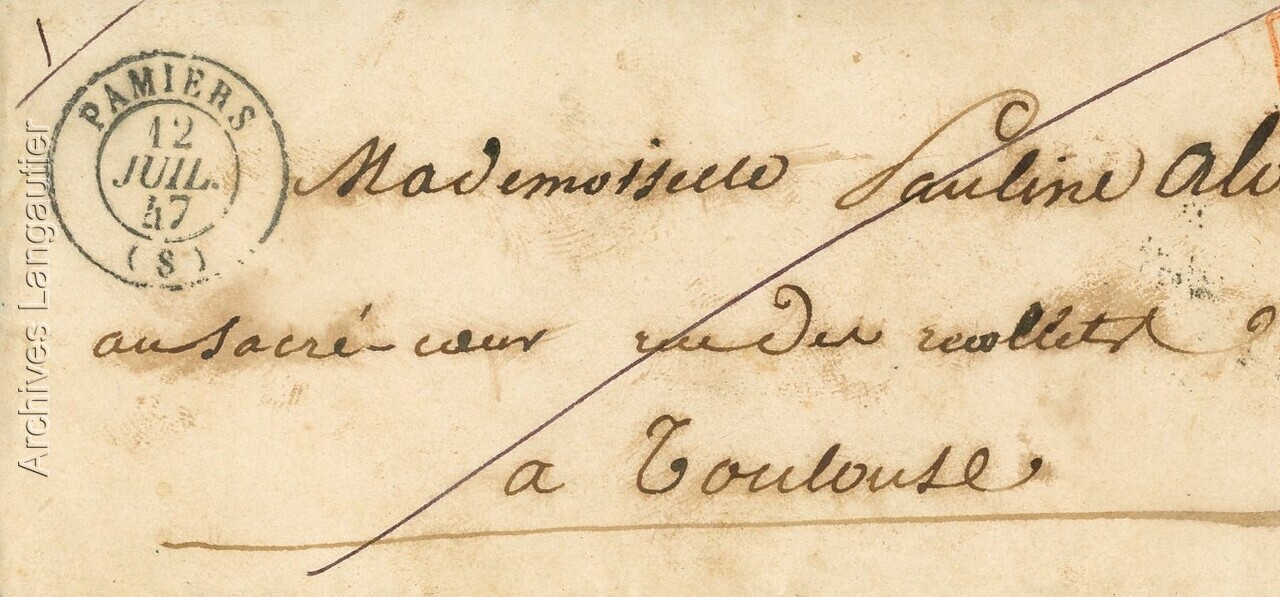 PAMIERS
12
JUIL.
47
(8)
Mademoiselle Pauline
au sacré-cœur rue des recollets
a Toulouse
Archives Langautier